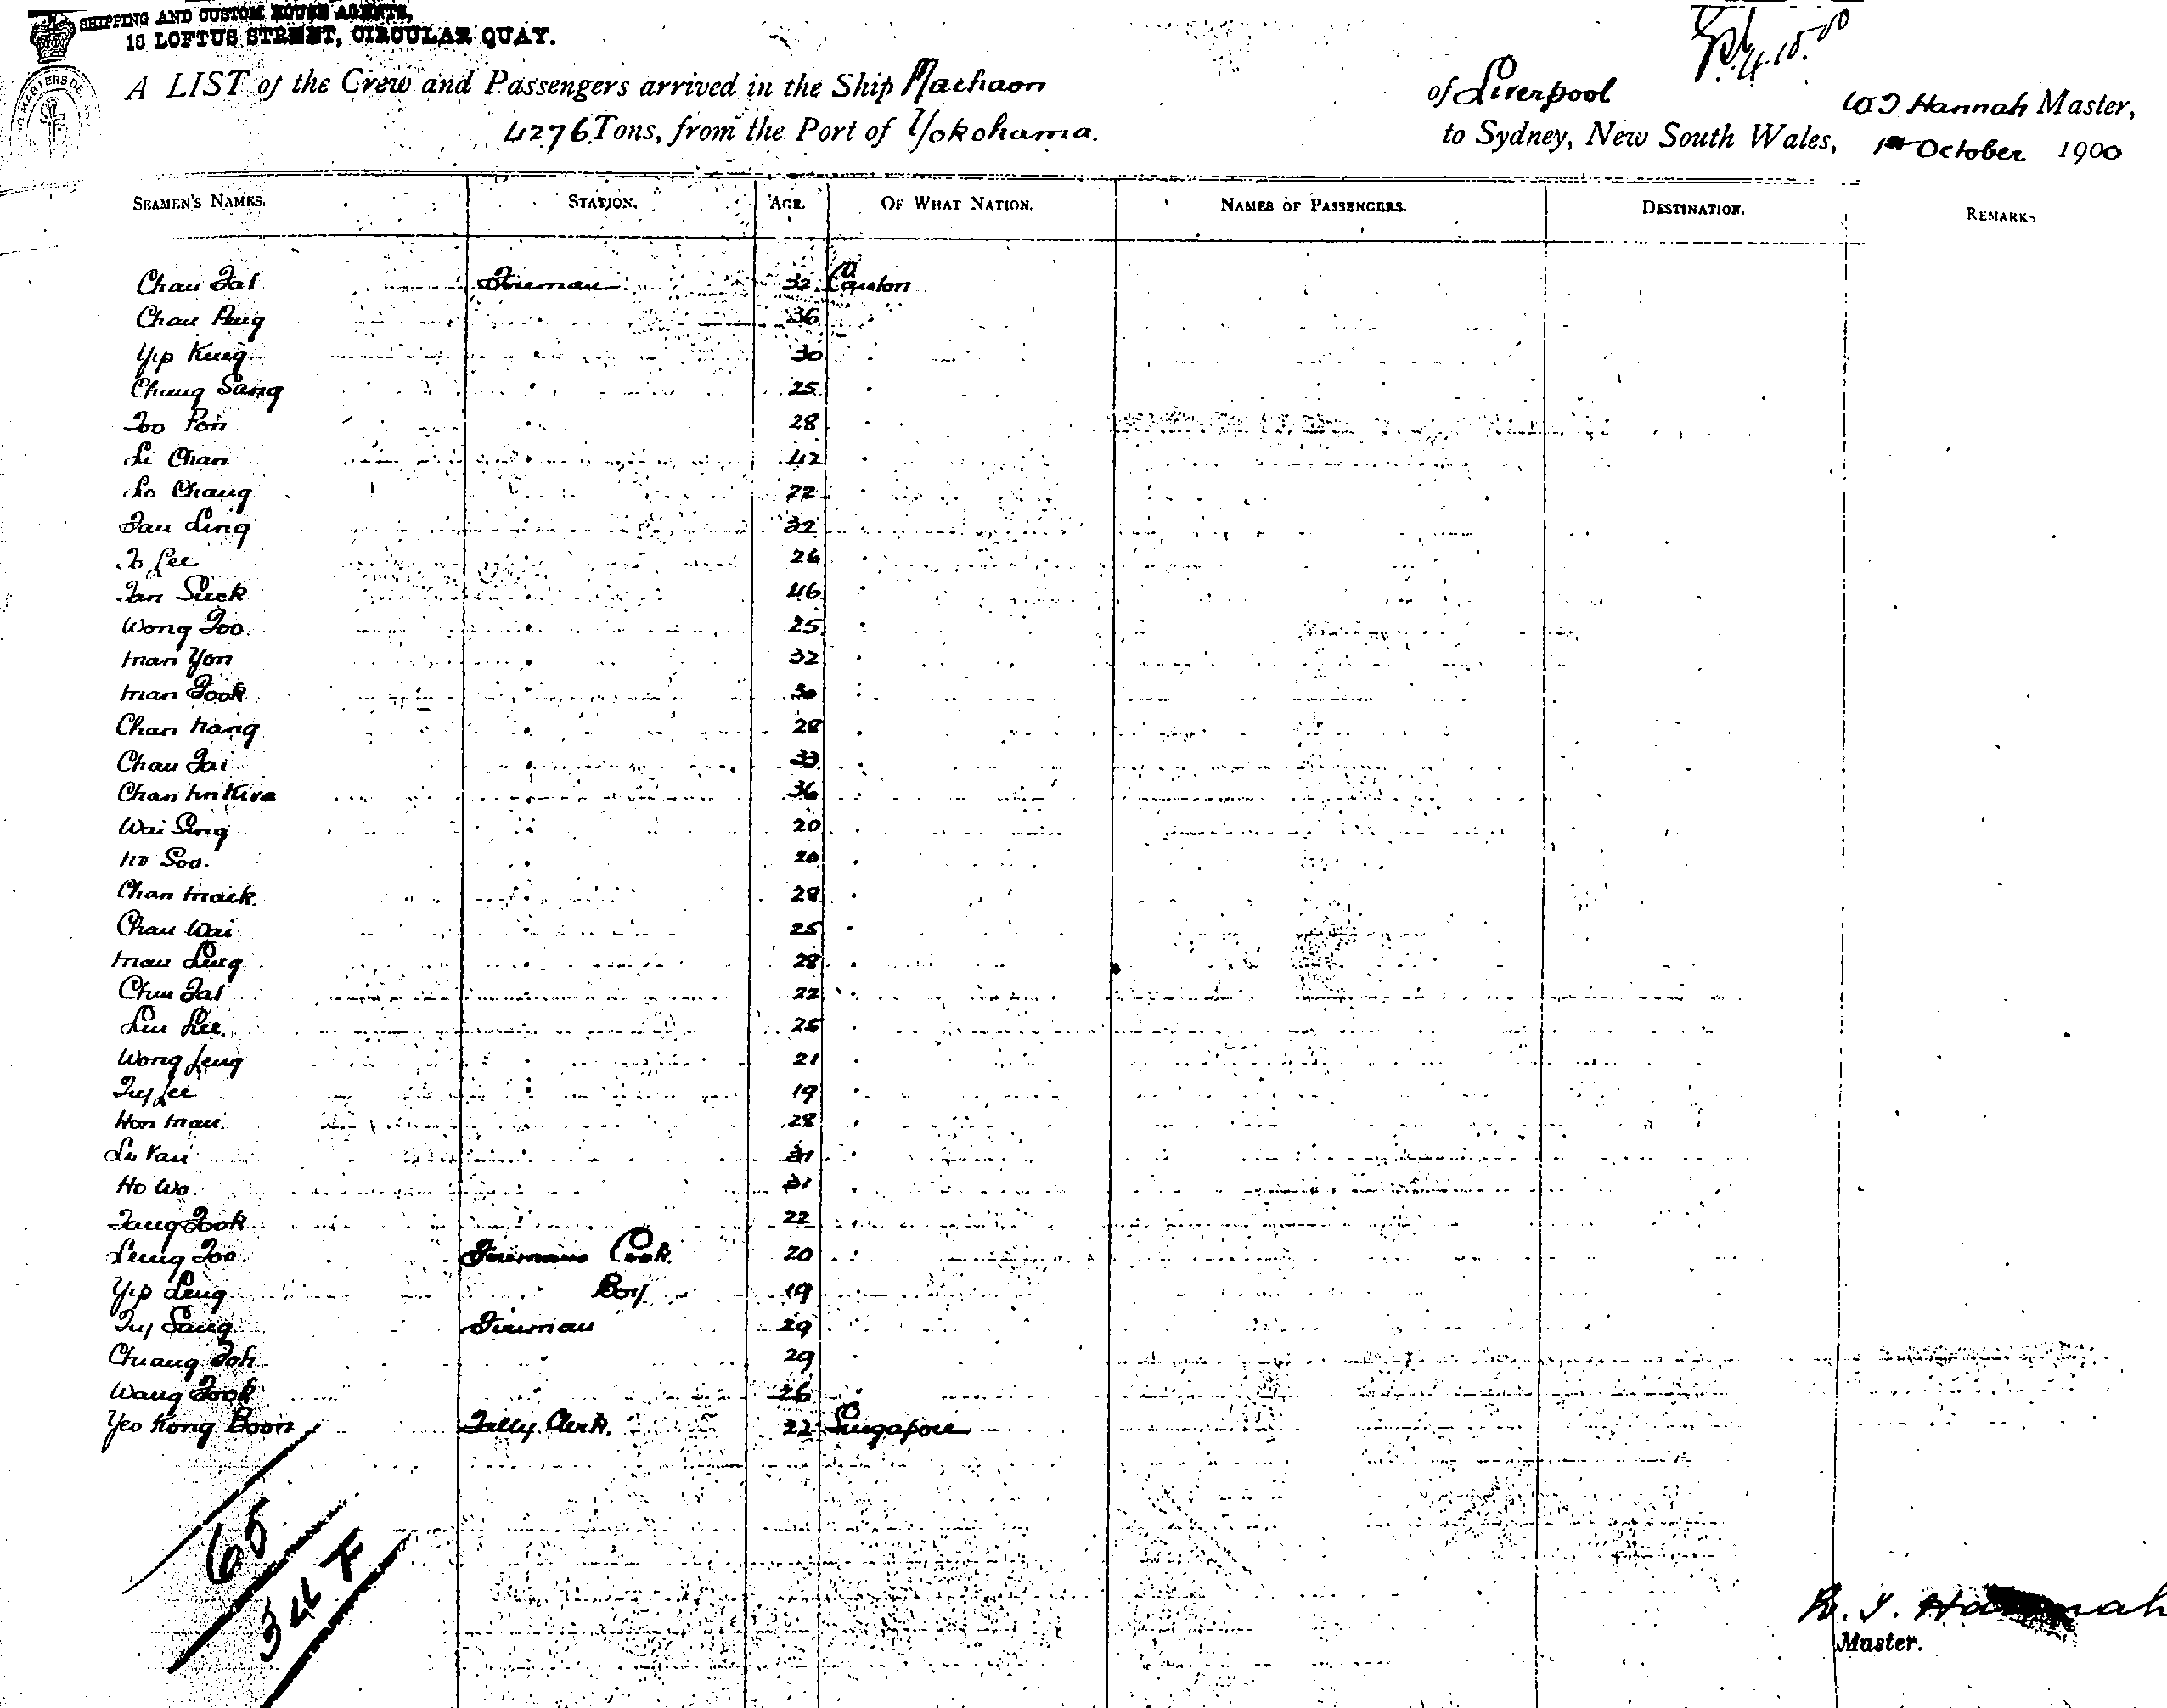 SHIPPING AND CUSTOM HOUSE AGENTS,
10 LOFTUS STREET, CIRCULAR QUAY.
A LIST of the Crew and Passengers arrived in the Ship Machaon of Liverpool W J Hannah Master,
4276 Tons, from the Port of Yokohama. to Sydney, New South Wales, 1st October 1900
SEAMEN'S NAMES. STATION. AGE. OF WHAT NATION. NAMES OF PASSENGERS. DESTINATION. REMARKS
Chau Fat Fireman 32 Canton
Chau Peng 36
Yip Kung 30
Chung Sang 25
Foo Pon 28
Li Chan 42
Lo Chang 22
Fau Ling 32
To Lee 26
Fan Suck 46
Wong Foo 25
Man Yon 32
Man Fook 30
Chan Kang 28
Chau Fai 33
Chan 36
Wai Sing 20
Ho Soo. 20
Chan Mack. 28
Chau Wai 25
Mau Ling 28
Chu Fat 22
Lui Lee 25
Wong Leng 21
Lee 19
Hon Mau. 28
Lu Yau 31
Ho Wo. 31
Fang Fook 22
Leung Foo Firemans Cook. 20
Yip Leng Boy 19
Sang Fireman 29
Chang Foh 29
Wang Fook 26
Yeo Kong Boon Tally Clerk. 22 Singapore
65
34 F
W. J. Hannah
Master.